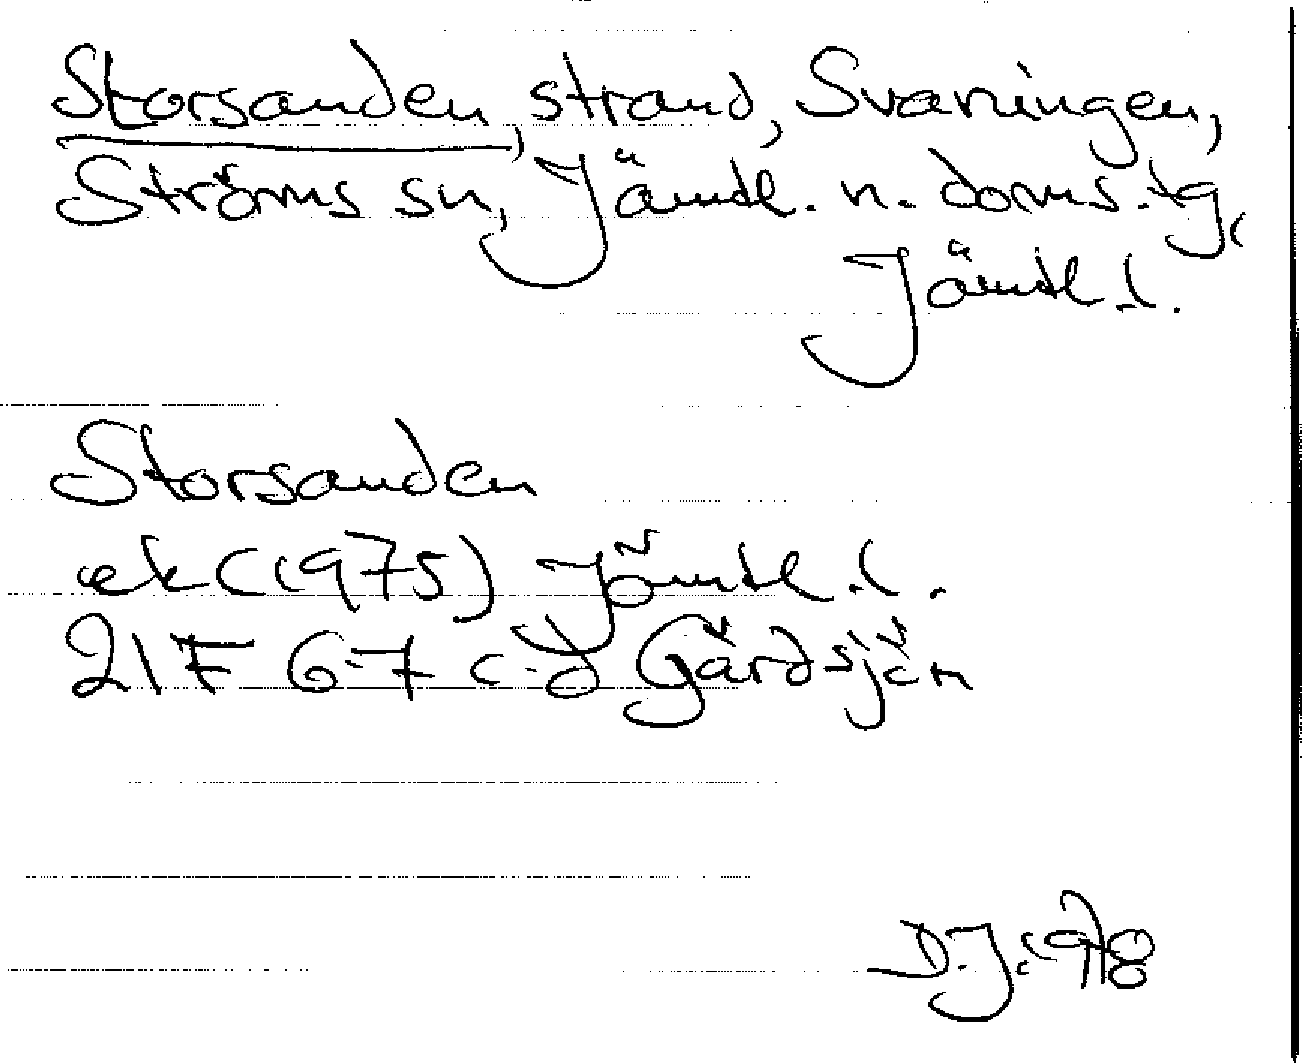 Storsanden, strand, Svaningen,
Ströms sn, Jämtl. n. doms. tg,
Jämtl. l.
Storsanden
ek (1975) Jämtl. l.
21F 6-7 c-d Gärdsjön
D.J. 1978